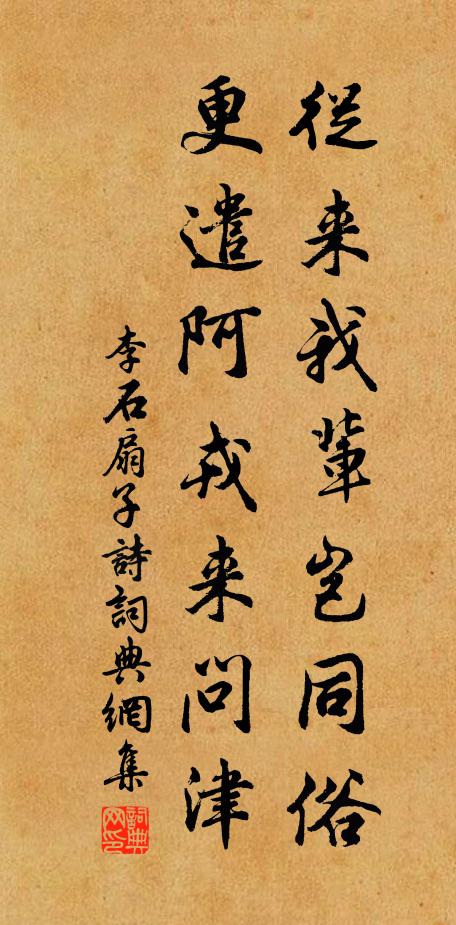 從来我輩岂同俗
更遣阿戎来問津
李石扇子詩詞典網集
詞典网印